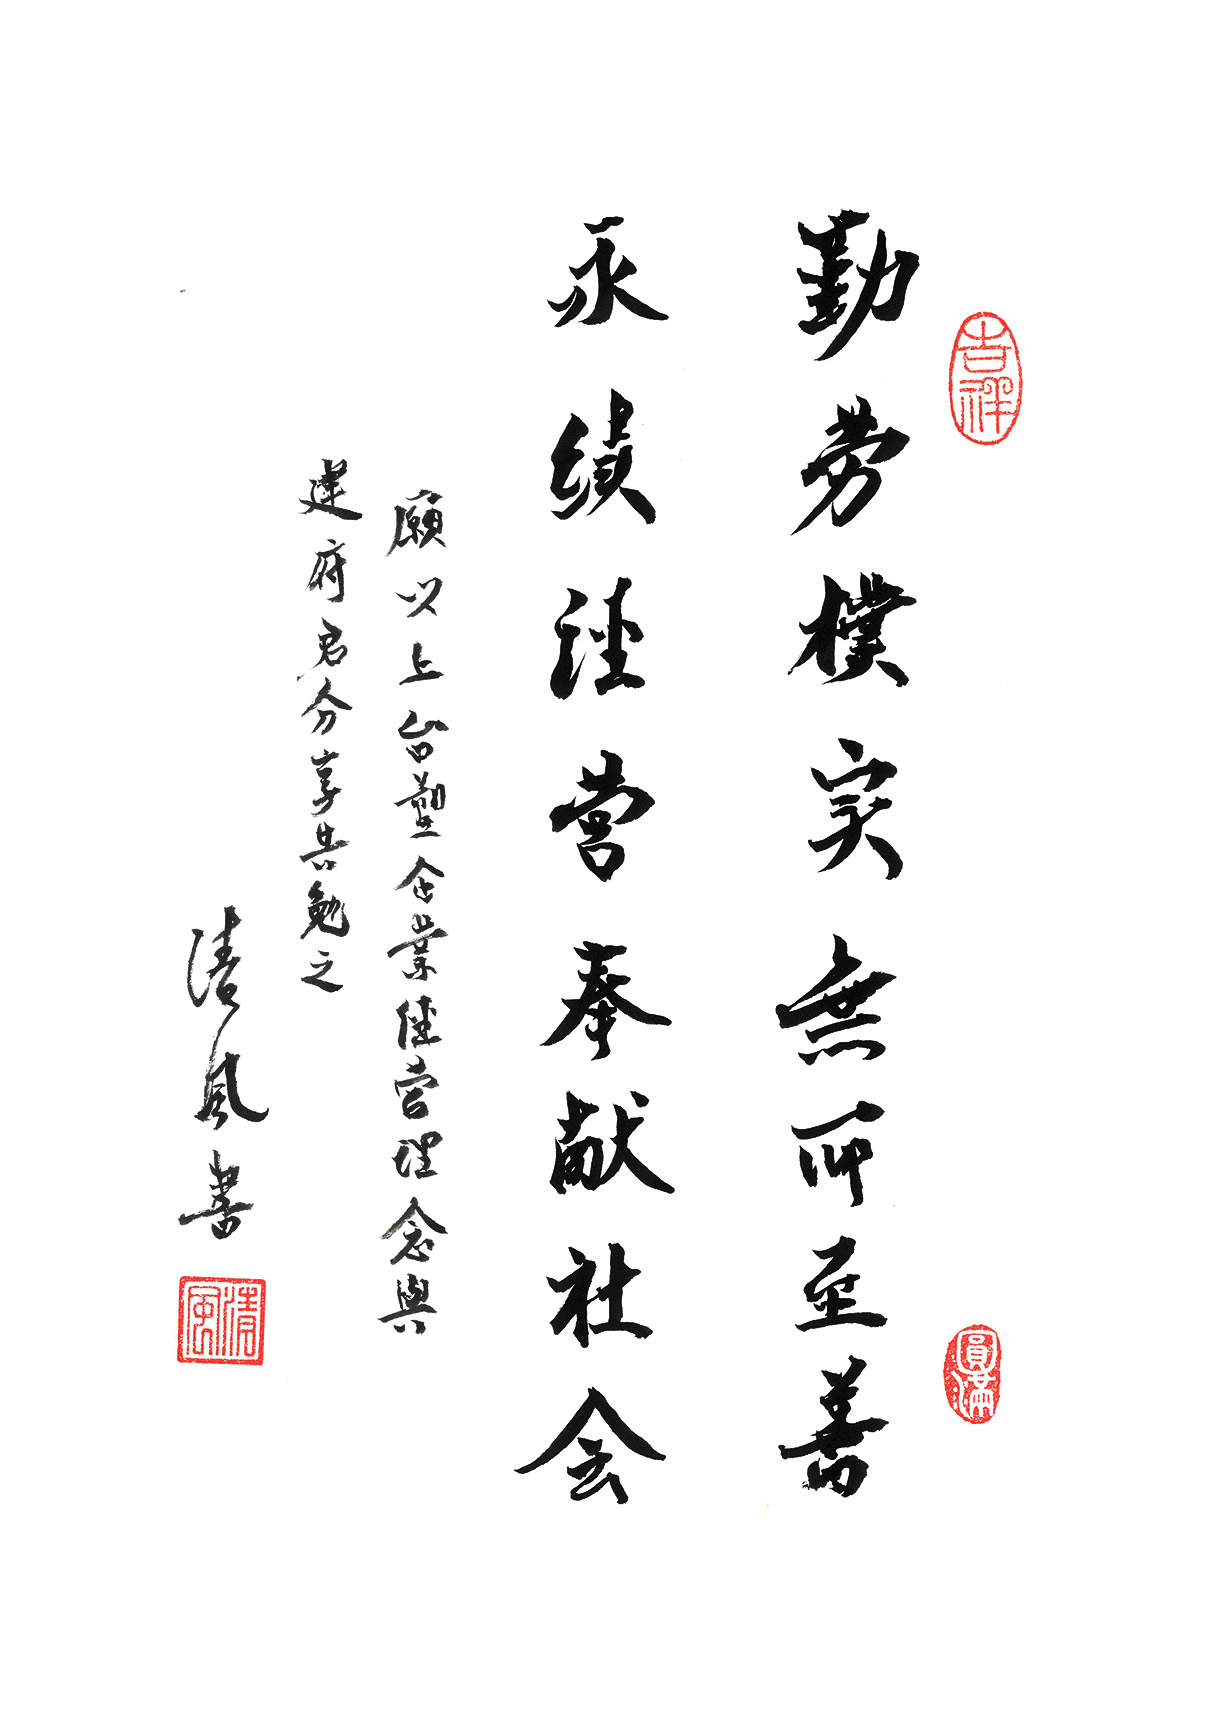 吉祥
勤劳樸实無所至善
圓滿
永續經营奉献社会
願以上台塑企業經营理念與
府君分享共勉之
清風書
清風